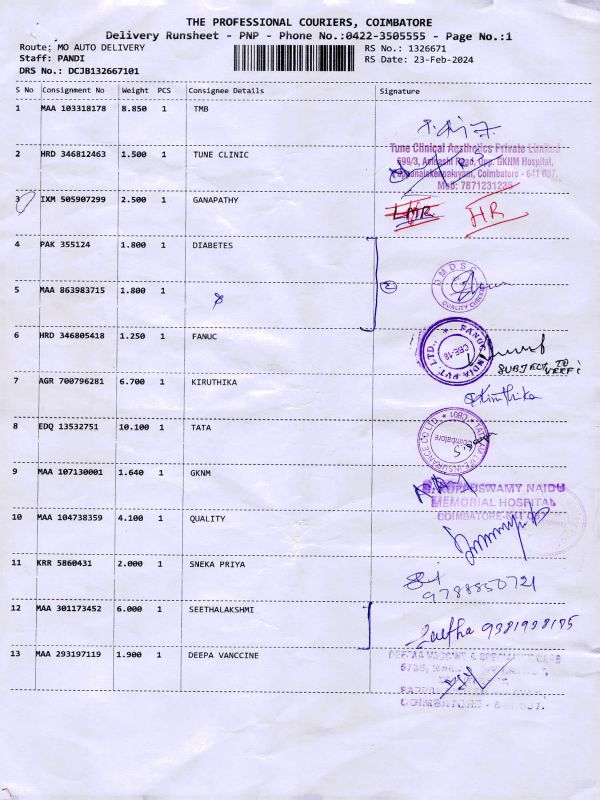 THE PROFESSIONAL COURIERS, COIMBATORE
Delivery Runsheet - PNP - Phone No.:0422-3505555 - Page No.:1
Route: MO AUTO DELIVERY RS No.: 1326671
Staff: PANDI RS Date: 23-Feb-2024
DRS No.: DCJB132667101
S No Consignment No Weight PCS Consignee Details Signature
1 MAA 103318178 8.850 1 TMB
Tune Clinical Aesthetics Private Limited
2 HRD 346812463 1.500 1 TUNE CLINIC
699/3, Avinashi Road, Opp. GKNM Hospital,
Pappanaickenpalayam, Coimbatore - 641 037.
Mob: 7871231236
3 IXM 505907299 2.500 1 GANAPATHY
LMR HR
4 PAK 355124 1.800 1 DIABETES
DMDSC
QUALITY CHECKED
5 MAA 863983715 1.800 1
2
6 HRD 346805418 1.250 1 FANUC
FANUC INDIA PVT LTD.,
CBE-18
SUBJECT TO
7 AGR 700796281 6.700 1 KIRUTHIKA
Kiruthika
8 EDQ 13532751 10.100 1 TATA
Coimbatore
9 MAA 107130001 1.640 1 GKNM
G. KUPPUSWAMY NAIDU
MEMORIAL HOSPITAL
COIMBATORE-641 037
10 MAA 104738359 4.100 1 QUALITY
11 KRR 5860431 2.000 1 SNEKA PRIYA
9788850721
12 MAA 301173452 6.000 1 SEETHALAKSHMI
9381928185
13 MAA 293197119 1.900 1 DEEPA VANCCINE
COIMBATORE - 641 037.